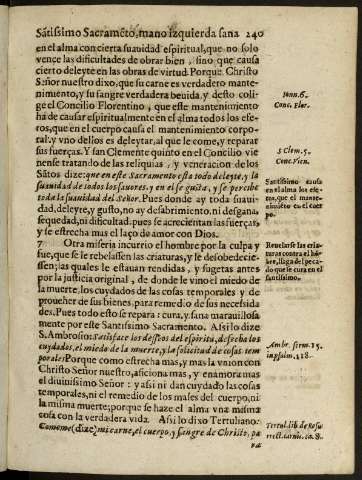 Sãtissimo Sacramẽto, mano izquierda sana 240
en el alma con cierta suauidad espiritual, que no solo
vence las dificultades de obrar bien, sino que causa
cierto deleyte en las obras de virtud. Porque Christo
Señor nuestro dixo, que su carne es verdadero mante-
nimiento, y su sangre verdadera beuida, y desto coli-
ge el Concilio Florentino, que este mantenimiento
há de causar espiritualmente en el alma todos los efe-
tos, que en el cuerpo causa el mantenimiento corpo-
ral: y vno dellos es deleytar, al que le come, y reparar
sus fuerças. Y san Clemente quinto en el Concilio vie-
nense tratando de las reliquias, y veneracion de los
Sãtos dize: que en este Sacramento esta todo deleyte, y la
suauidad de todos los sauores, y en el se gusta, y se percibe
toda la suauidad del Señor. Pues donde ay toda suaui
dad, deleyte, y gusto, no ay desabrimiento, ni desgana,
sequedad, ni dificultad, pues se acrecientan las fuerças,
y se estrecha mas el laço de amor con Dios.
7 Otra miseria incurrio el hombre por la culpa y
fue, que se le rebelassen las criaturas, y le desobedecie-
ssen; las quales le estauan rendidas, y sugetas antes
por la justicia original, de donde le vino el miedo de
la muerte, los cuydados de las cosas temporales y de
proueher de sus bienes, para remedio de sus necessida
des. Pues todo esto se repara: cura, y sana marauillosa
mente por este Santissimo Sacramento. Assi lo dize
S. Ambrosio: Satisface los dessos del espiritu, desecha los
cuydados, el miedo de la muerte, y la solicitud de cosas tem
porales: Porque como estrecha mas, y mas la vnon con
Christo Señor nuestro, aficiona mas, y enamora mas
el diuinissimo Señor: y assi ni dan cuydado las cosas
temporales, ni el remedio de los males del cuerpo, ni
la misma muerte; porque se haze el alma vna misma
cosa con la verdadera vida. Assi lo dixo Tertuliano:
Comome (dize) mi carne, el cuerpo, y sangre de Christo, pa
ra
Ioan. 6.
Conc. Flor.
S Clem. 5.
Conc. Vien.
Santissimo causa
en el alma los efe
tos, que el mante-
nimiẽto en el cuer
po.
Reuelarse las cria
turas contra el hõ-
bre, llaga del peca-
do que se cura en el
santissimo.
Ambr. serm. 15.
in psalm. 118.
Tertul. lib. de Resu
rrect. carnis. ca. 8.